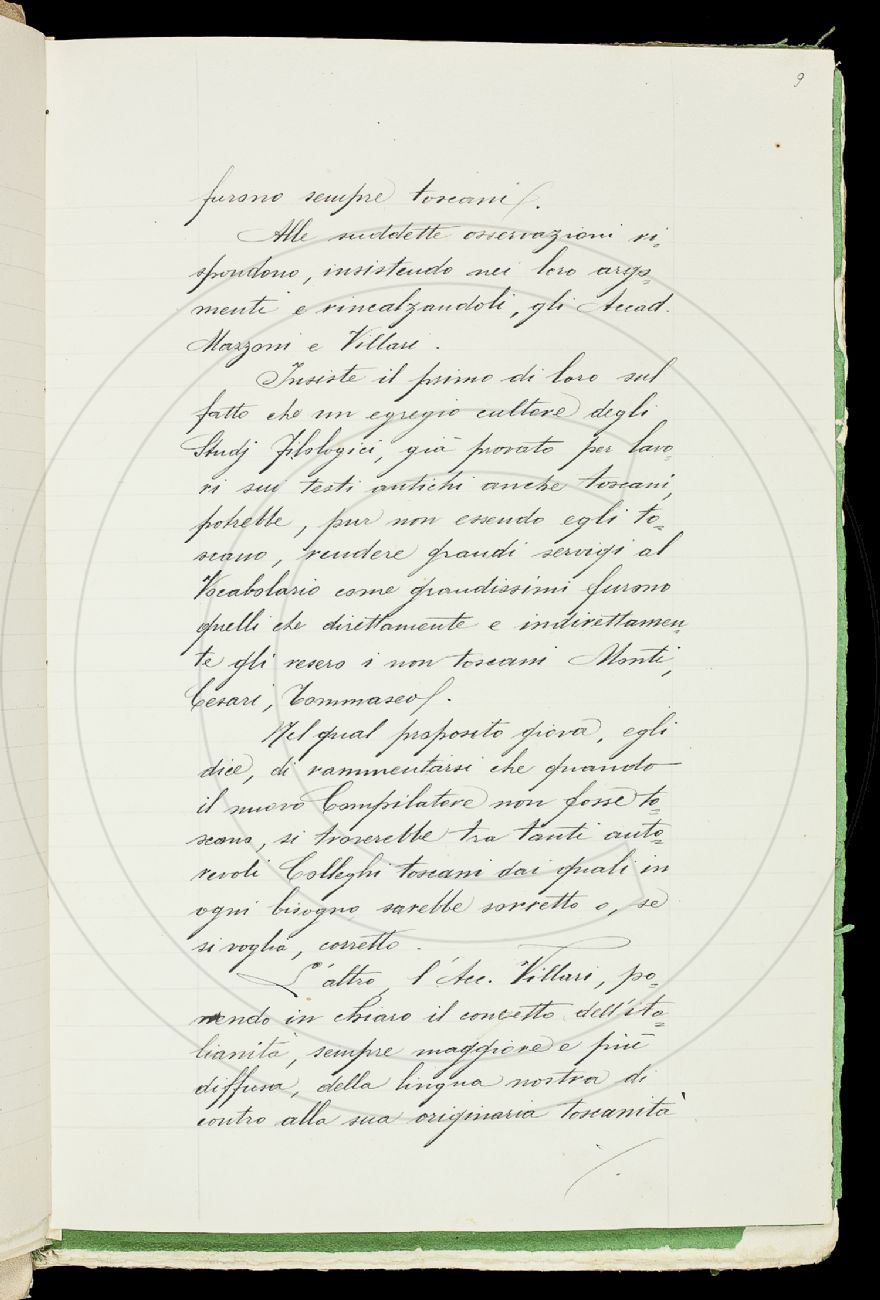 9
furono sempre toscani.
Alle suddette osservazioni ri=
spondono, insistendo nei loro argo=
menti e rincalzandoli, gli Accad.
Mazzoni e Villari.
Insiste il primo di loro sul
fatto che un egregio cultore degli
Studj filologici, già provato per lavo=
ri sui testi antichi anche toscani,
potrebbe, pur non essendo egli to=
scano, rendere grandi servigi al
Vocabolario come grandissimi furono
quelli che direttamente e indirettamen=
te gli resero i non toscani Monti,
Cesari, Tommaseo.
Nel qual proposito giova, egli
dice, di rammentarsi che quando
il nuovo Compilatore non fosse to=
scano, si troverebbe tra tanti auto=
revoli Colleghi toscani dai quali in
ogni bisogno sarebbe sorretto o, se
si voglia, corretto.
L'altro, l'Acc. Villari, po=
nendo in chiaro il concetto dell'ita=
lianità, sempre maggiore e più
diffusa, della lingua nostra di
contro alla sua originaria toscanità